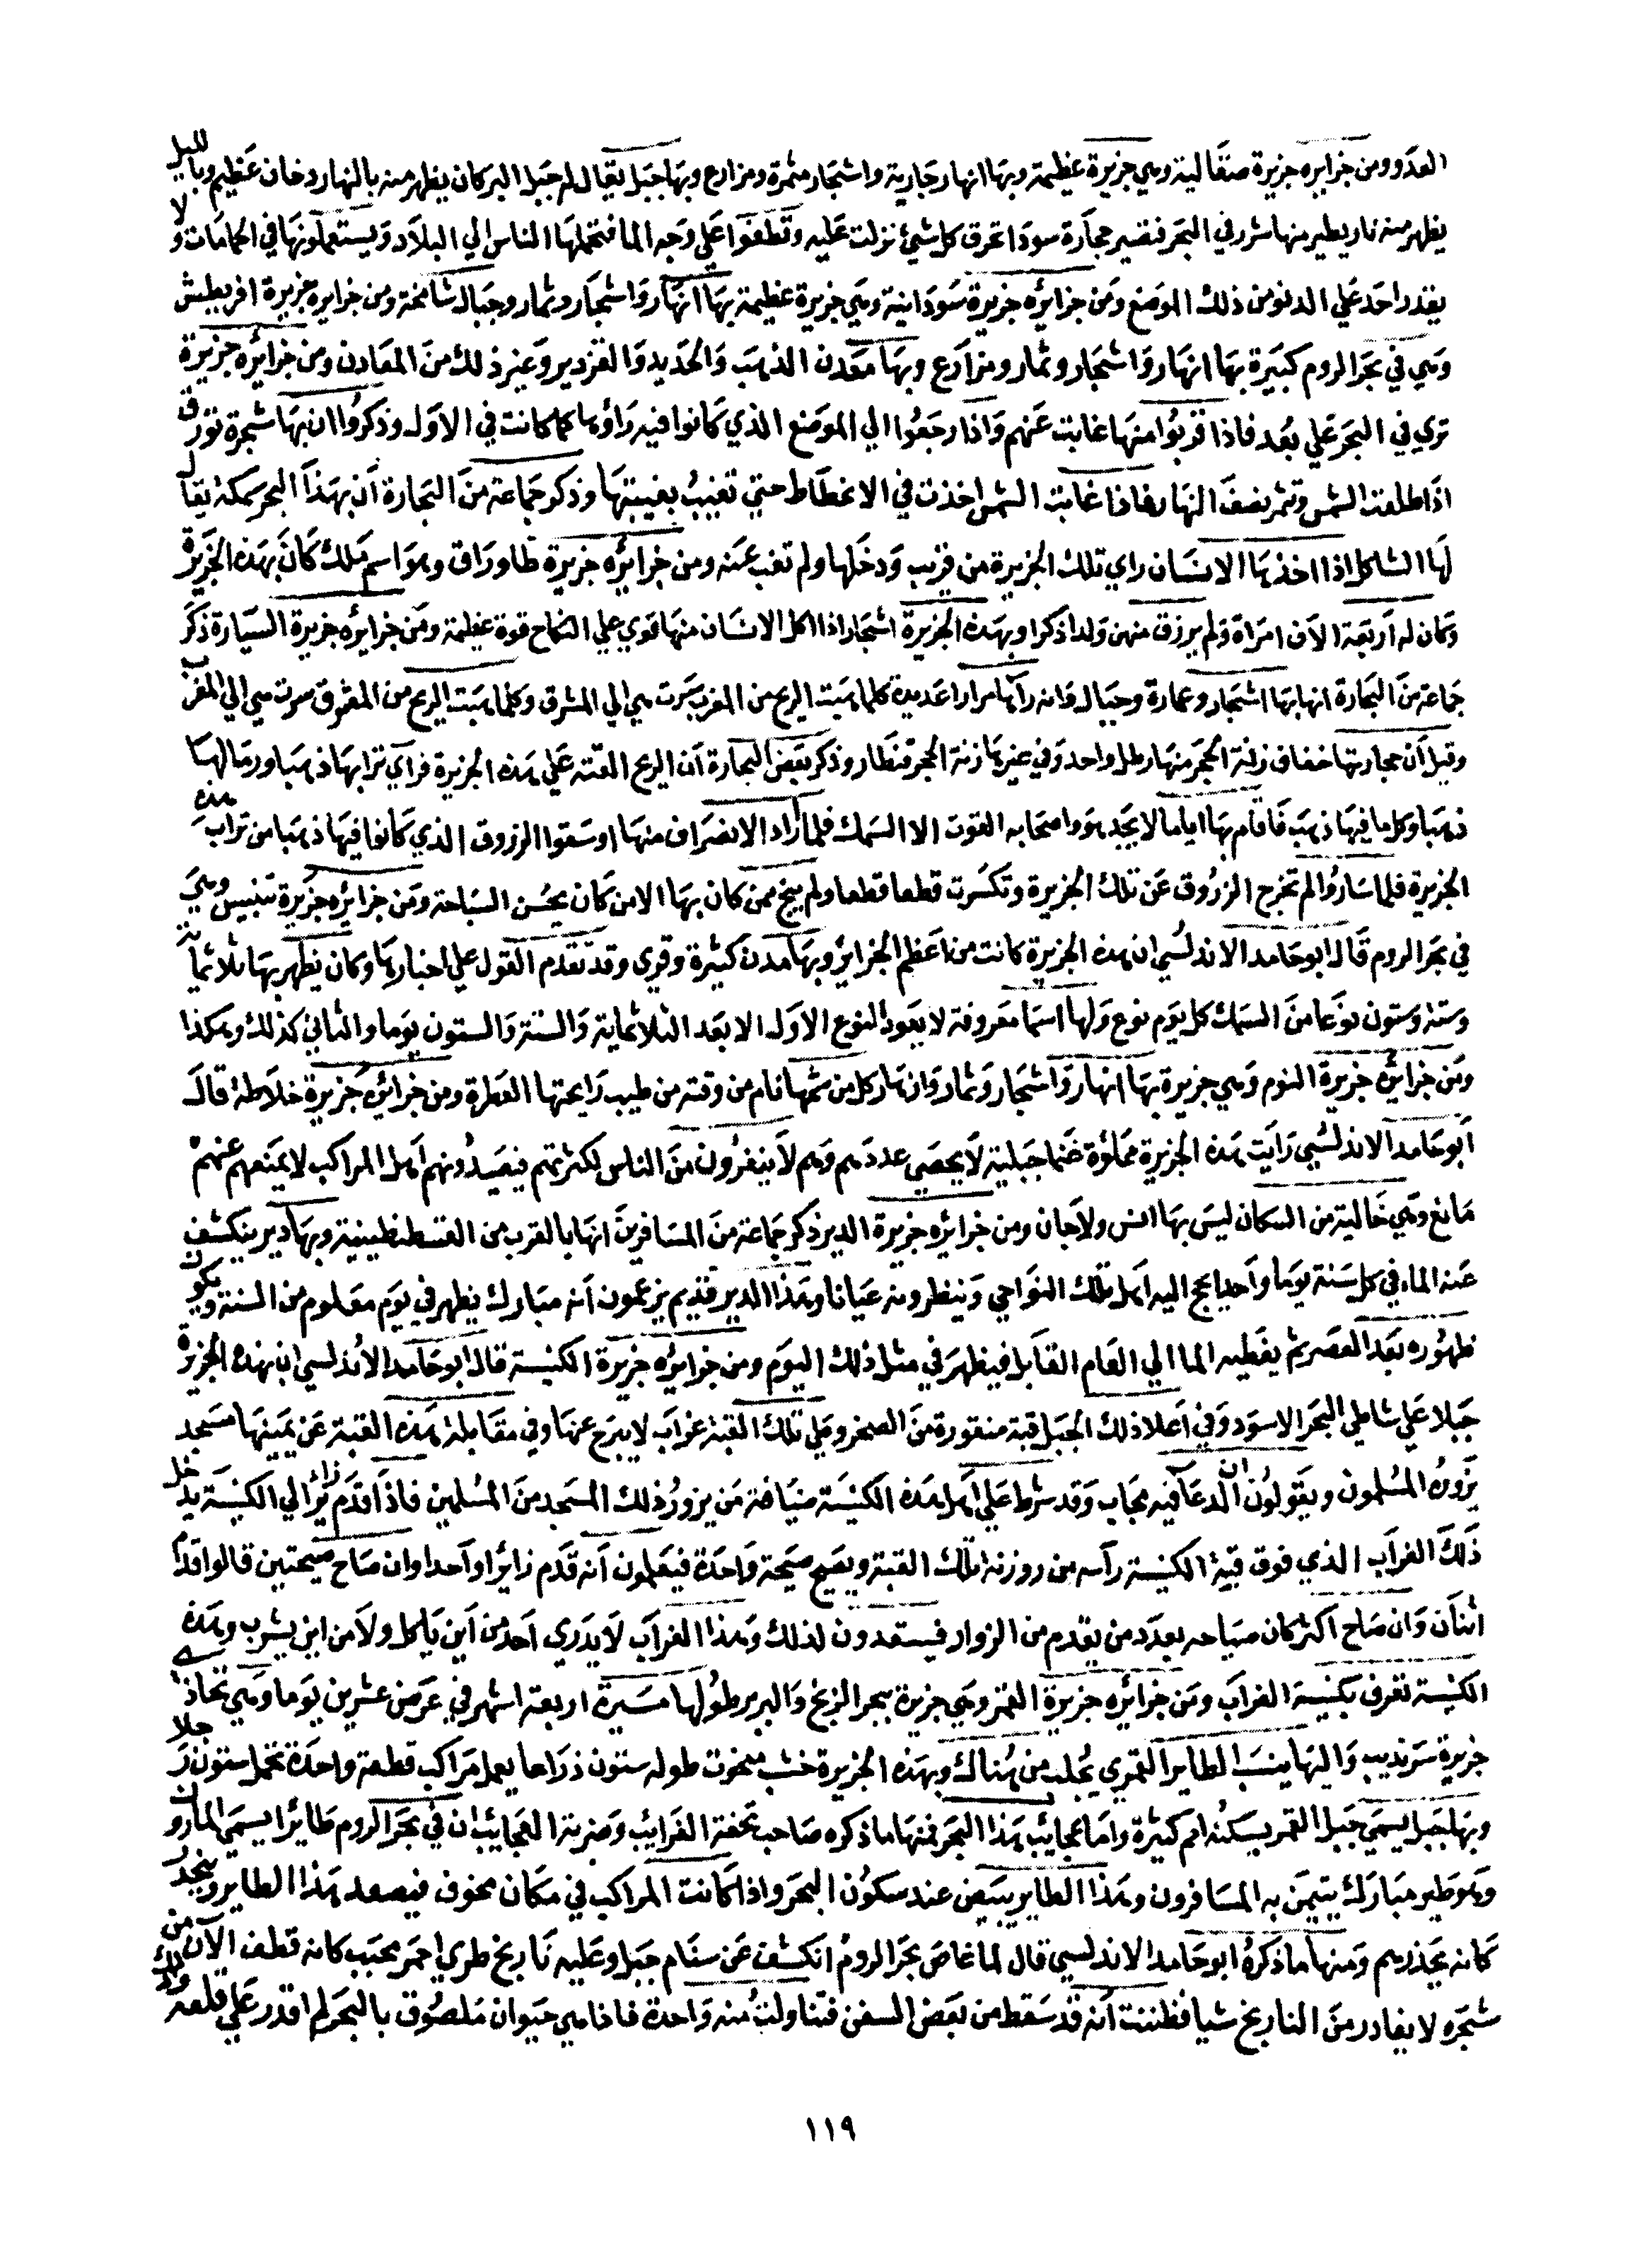 العدو ومن جزايره جزيرة صقالية وهي جزيرة عظيمة وبها انهار جارية واشجار مثمرة ومزارع وبها جبل يقال له جبل البركان يظهر منه بالنهار دخان عظيم وبالليل
يظهر منه نار يطير منها شرر في البحر فتصير حجارة سودا تحرق كل شئ نزلت عليه وتطفوا علي وجه الما فتحملها الناس الي البلاد ويستعملونها في الحمامات ولا
يقدر احد علي الدنو من ذلك الموضع ومن جزائره جزيرة سودانية وهي جزيرة عظيمة بها انهار واشجار وثمار وجبال شامخة ومن جزايره جزيرة اقريطش
وهي في بحر الروم كبيرة بها انهار واشجار وثمار ومزارع وبها معدن الذهب والحديد والقزدير وغير ذلك من المعادن ومن جزائره جزيرة
تري في البحر علي بعد فاذا قربوا منها غابت عنهم واذا رجعوا الي الموضع الذي كانوا فيه راؤها كما كانت في الاول وذكروا ان بها شجرة تورق
اذا طلعت الشمس وتثمر نصف النهار فاذا غابت الشمس اخذت في الانحطاط حتي تغيب بغيبتها وذكر جماعة من البحارة أن بهذا البحر سمكة يقال
لها الشاكل اذا اخذها الانسان راي تلك الجزيرة من قريب ودخلها ولم تغب عنه ومن جزائره جزيرة طاوراق وهو اسم ملك كان بهذه الجزيرة
وكان له اربعة الاف امراة ولم يرزق منهن ولدا ذكرا وبهذه الجزيرة اشجار اذا اكل الانسان منها قوي علي النكاح قوة عظيمة ومن جزائره جزيرة السيارة ذكر
جماعة من البحارة انها بها اشجار وعمارة وجبال وانه رآها مرارا عديدة كلما هبت الريح من المغرب سرت هي الي المشرق وكلما هبت الريح من المشرق سرت هي الي المغرب
وقيل أن حجارتها خفاف زنة الحجر منها رطل واحد وفي غيرها زنة الحجر قنطار وذكر بعض البحارة أن الريح القته علي هذه الجزيرة فرآي ترابها ذهبا ورمالها
ذهبا وكل ما فيها ذهب فاقام بها اياما لا يجد هو واصحابه القوت الا السمك فلما أراد الانصراف منها اوسقوا الزروق الذي كانوا فيها ذهبا من تراب هذه
الجزيرة فلما ساروا لم تخرج الزروق عن تلك الجزيرة وتكسرت قطعا قطعا ولم ينج ممن كان بها الا من كان يحسن السباحة ومن جزائره جزيرة تنيس وهي
في بحر الروم قال ابو حامد الاندلسي ان هذه الجزيرة كانت من اعظم الجزاير وبها مدن كثيرة وقري وقد تقدم القول علي اخبارها وكان يظهر بها ثلاثماية
وستة وستون نوعا من السمك كل يوم نوع ولها اسما معروفة لا يعود النوع الاول الا بعد الثلاثماية والستة والستون يوما والثاني كذلك وهكذا
ومن جزائره جزيرة النوم وهي جزيرة بها انهار واشجار وثمار وازهار كل من شمها نام من وقته من طيب رايحتها العطرة ومن جزائره جزيرة خلاطة قال
ابو حامد الاندلسي رايت هذه الجزيرة مملؤة غنما جبلية لا يحصي عددهم وهم لا ينفرون من الناس لكثرتهم فيصيدونهم اهل المراكب لا يمنعهم عنهم
مانع وهي خالية من السكان ليس بها انس ولا جان ومن جزائره جزيرة الدير ذكر جماعة من المسافرين انها بالقرب من القسطنطينية وبها دير ينكشف
عنه الماء في كل سنة يوما واحدا يحج اليه اهل تلك النواحي وينظرونه عيانا وهذا الدير قديم يزعمون أنه مبارك يظهر في يوم معلوم من السنة ويكون
ظهوره بعد العصر ثم يغطيه الما الي العام القابل فيظهر في مثل ذلك اليوم ومن جزائره جزيرة الكنيسة قال ابو حامد الاندلسي ان بهذه الجزيرة
جبلا علي شاطي البحر الاسود وفي اعلا ذلك الجبل قبة منقورة من الصخر وعلي تلك القبة غراب لا يبرح عنها وفي مقابلة هذه القبة عن يمينها مسجد
يزوره المسلمون ويقولون ان الدعا فيه مجاب وقد شرط علي اهل هذه الكنيسة ضيافة من يزور ذلك المسجد من المسلمين فاذا قدم زائرا الي الكنيسة يدخل
ذلك الغراب الذي فوق قبة الكنيسة رآسه من روزنة تلك القبة ويصيح صيحة واحدة فيعلمون أنه قدم زايرا واحدا وان صاح صيحتين قالوا قدم
اثنان وان صاح اكثر كان صياحه بعدد من يقدم من الزوار فيستعدون لذلك وهذا الغراب لا يدري احد من أين يأكل ولا من اين يشرب وهذه
الكنيسة تعرف بكنيسة الغراب ومن جزائره جزيرة القمر وهي جزيرة ببحر الزنج والبربر طولها مسيرة اربعة اشهر في عرض عشرين يوما وهي تحاذي
جزيرة سرنديب واليها ينسب الطاير القمري يجلب من هناك وبهذه الجزيرة خشب منحوت طوله ستون ذراعا يعمل مراكب قطعة واحدة تحمل ستون رجلا
وبها جبل يسمي جبل القمر يسكنه امم كثيرة واما عجائب هذا البحر فمنها ما ذكره صاحب تحفة الغرايب وضربة العجايب ان في بحر الروم طائرا يسمي المارون
وهو طير مبارك يتيمن به المسافرون وهذا الطاير يبيض عند سكون البحر واذا كانت المراكب في مكان مخوف فيصعد هذا الطاير وينحدر
كانه يحذرهم ومنها ما ذكره ابو حامد الاندلسي قال لما غاص بحر الروم انكشف عن سنام جبل وعليه نارنج طري احمر يحبب كانه قطف الآن من
شجره لا يغادر من النارنج شيا فظننت أنه قد سقط من بعض السفن فتناولت منه واحدة فاذا هي حيوان ملصوق بالبحر لم اقدر علي قلعه
١١٩